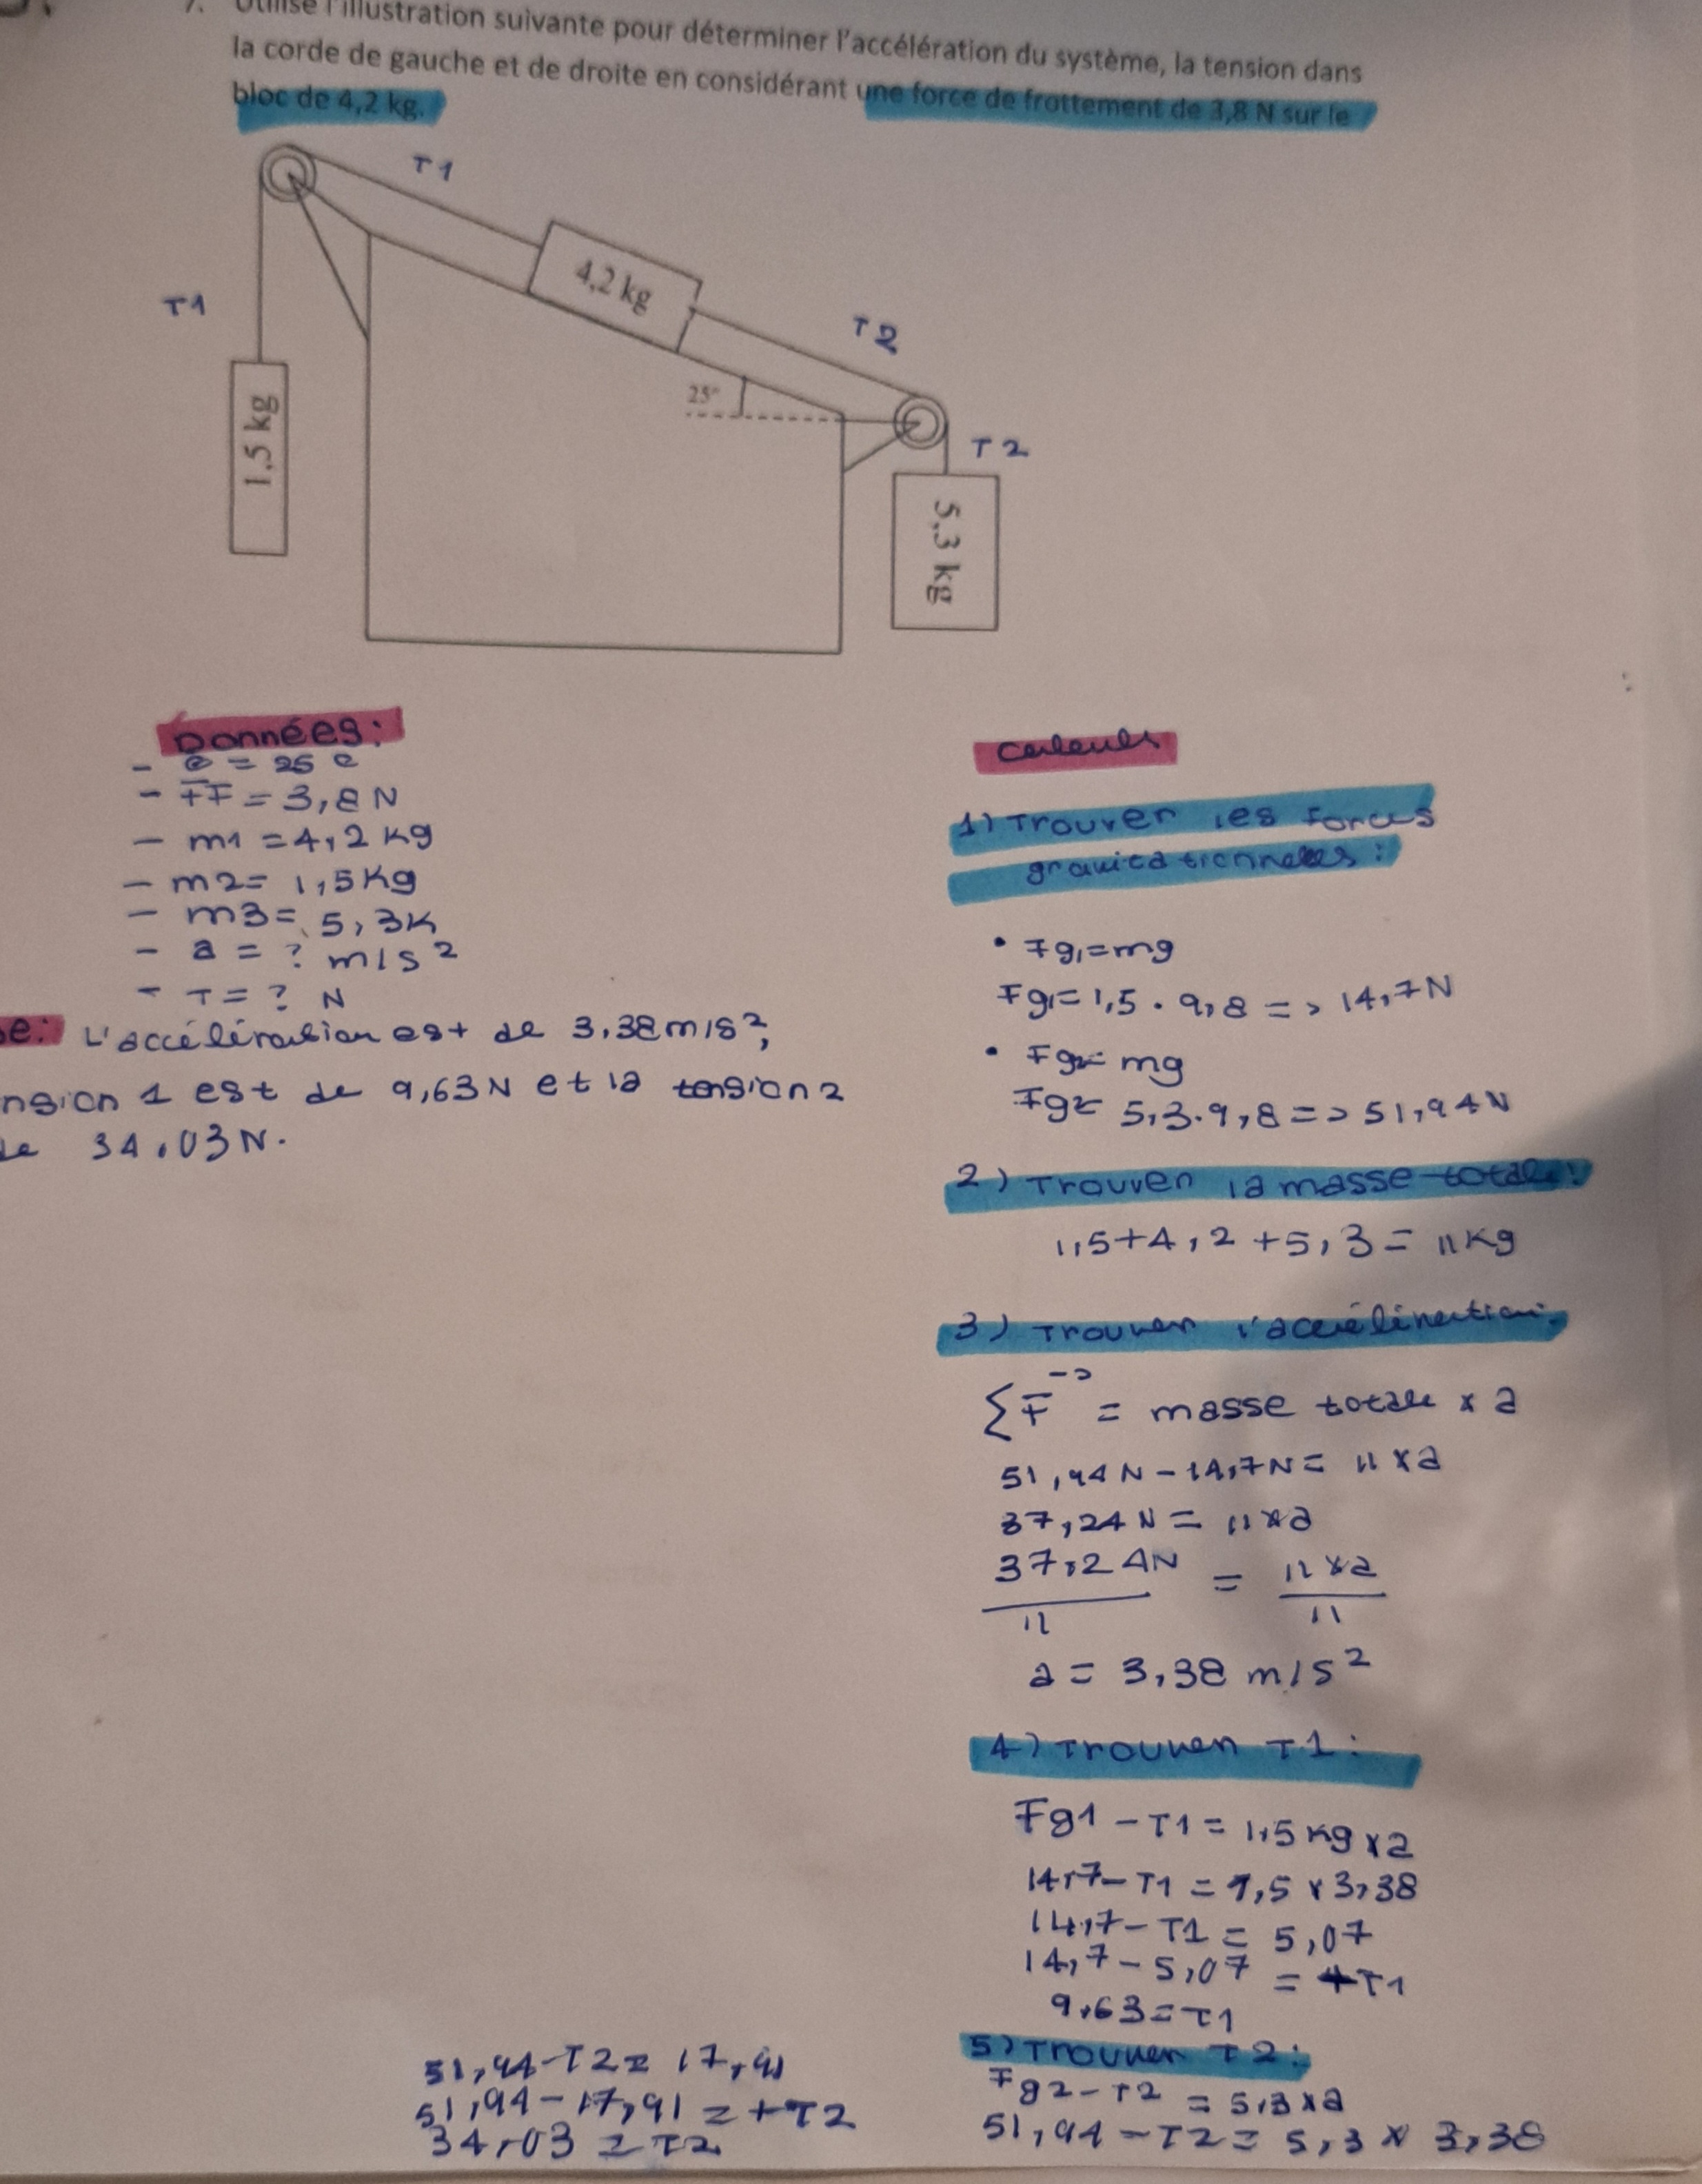 7. Utilise l'illustration suivante pour déterminer l'accélération du système, la tension dans
la corde de gauche et de droite en considérant une force de frottement de 3,8 N sur le
bloc de 4,2 kg.
T1
4,2 kg
T1
T2
25°
1,5 kg
T2
5,3 kg
Données:
- θ = 25°
- FF = 3,8 N
- m1 = 4,2 kg
- m2 = 1,5 kg
- m3 = 5,3 K
- a = ? m/s²
- T = ? N
e: L'accélération est de 3.38 m/s²,
nsion 1 est de 9,63 N et la tension 2
de 34,03 N.
calculs
1) Trouver les forces
gravitationnelles:
• Fg1 = mg
Fg1 = 1,5 · 9,8 => 14,7 N
• Fg2 = mg
Fg2 = 5,3 · 9,8 => 51,94 N
2) Trouver la masse totale:
1,5 + 4,2 + 5,3 = 11 kg
3) Trouver l'accélération:
Σ F→ = masse totale x a
51,94 N - 14,7 N = 11 x a
37,24 N = 11 x a
37,24 N = 11 x a
11 11
a = 3,38 m/s²
4) Trouver T1:
Fg1 - T1 = 1,5 kg x a
14,7 - T1 = 1,5 x 3,38
14,7 - T1 = 5,07
14,7 - 5,07 = +T1
9,63 = T1
5) Trouver T2:
Fg2 - T2 = 5,3 x a
51,94 - T2 = 5,3 x 3,38
51,94 - T2 = 17,91
51,94 - 17,91 = +T2
34,03 = T2